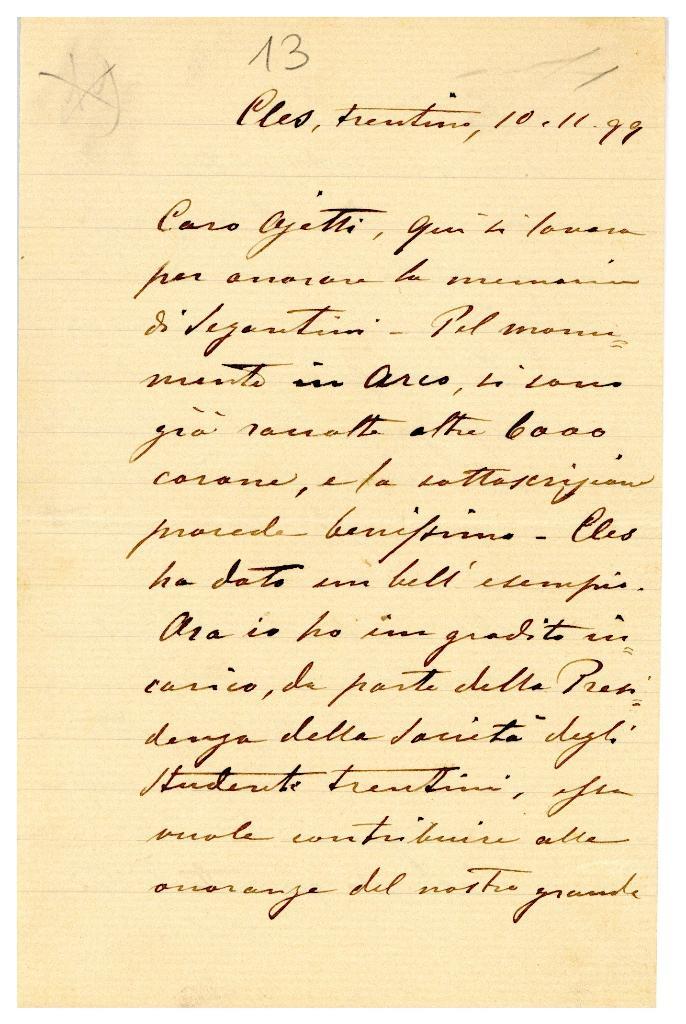 13
Cles, trentino, 10.11.99
Caro Ojetti, qui si lavora
per onorare la memoria
di Segantini - Pel monu=
mento in Arco, si sono
già raccolte oltre 6000
corone, e la sottoscrizione
procede benissimo - Cles
ha dato un bell' esempio.
Ora io ho un gradito in=
carico, da parte della Presi=
denza della Società degli
studenti trentini, essa
vuole contribuire alle
onoranze del nostro grande